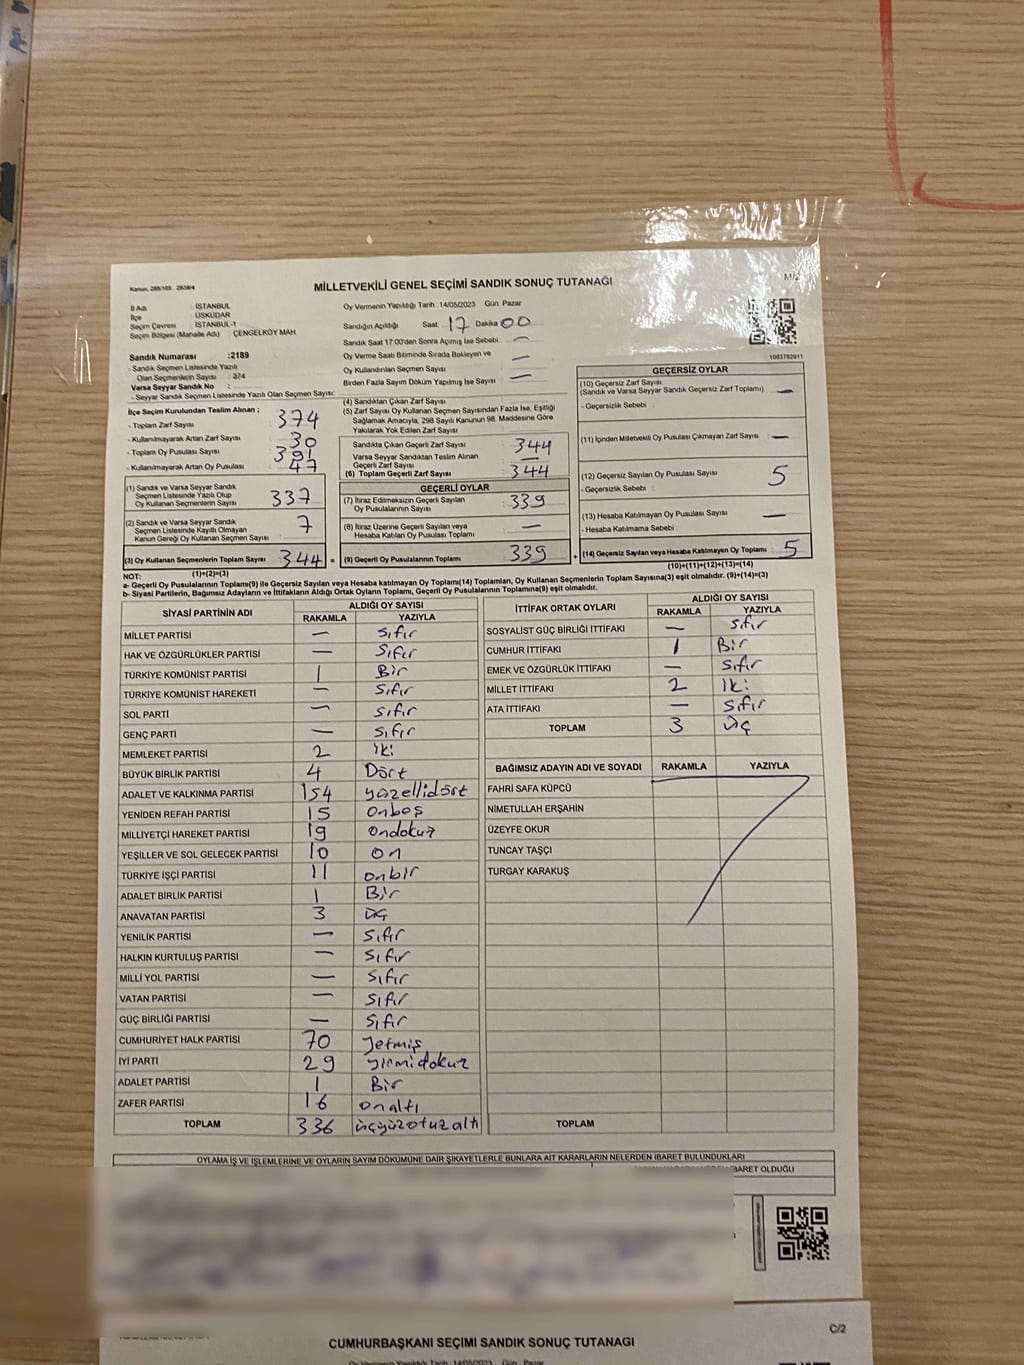 MİLLETVEKİLİ GENEL SEÇİMİ SANDIK SONUÇ TUTANAĞI
M/2
İl Adı : İSTANBUL
İlçe : ÜSKÜDAR
Seçim Çevresi : İSTANBUL-1
Seçim Bölgesi (Mahalle Adı) : ÇENGELKÖY MAH
Sandık Numarası :2189
- Sandık Seçmen Listesinde Yazılı
Olan Seçmenlerin Sayısı : 374
Varsa Seyyar Sandık No :
- Seyyar Sandık Seçmen Listesinde Yazılı Olan Seçmen Sayısı:
Oy Vermenin Yapıldığı Tarih : 14/05/2023 Gün: Pazar
Sandığın Açıldığı Saat 17 Dakika 00
Sandık Saat 17:00'den Sonra Açımış İse Sebebi : —
Oy Verme Saati Bitiminde Sırada Bekleyen ve
Oy Kullandırılan Seçmen Sayısı —
Birden Fazla Sayım Döküm Yapılmış İse Sayısı —
1083782911
İlçe Seçim Kurulundan Teslim Alınan ;
- Toplam Zarf Sayısı 374
- Kullanılmayarak Artan Zarf Sayısı 30
- Toplam Oy Pusulası Sayısı 391
- Kullanılmayarak Artan Oy Pusulası 47
(1) Sandık ve Varsa Seyyar Sandık
Seçmen Listesinde Yazılı Olup
Oy Kullanan Seçmenlerin Sayısı 337
(2) Sandık ve Varsa Seyyar Sandık
Seçmen Listesinde Kayıtlı Olmayan
Kanun Gereği Oy Kullanan Seçmen Sayısı : 7
(3) Oy Kullanan Seçmenlerin Toplam Sayısı 344 =
(1)+(2)=(3)
(4) Sandıktan Çıkan Zarf Sayısı
(5) Zarf Sayısı Oy Kullanan Seçmen Sayısından Fazla İse, Eşitliği
Sağlamak Amacıyla, 298 Sayılı Kanunun 98. Maddesine Göre
Yakılarak Yok Edilen Zarf Sayısı
Sandıkta Çıkan Geçerli Zarf Sayısı 344
Varsa Seyyar Sandıktan Teslim Alınan
Geçerli Zarf Sayısı —
(6) Toplam Geçerli Zarf Sayısı 344
GEÇERLİ OYLAR
(7) İtiraz Edilmeksizin Geçerli Sayılan
Oy Pusulalarının Sayısı 339
(8) İtiraz Üzerine Geçerli Sayılan veya
Hesaba Katılan Oy Pusulası Toplamı —
(9) Geçerli Oy Pusulalarının Toplamı 339 +
GEÇERSİZ OYLAR
(10) Geçersiz Zarf Sayısı
(Sandık ve Varsa Seyyar Sandık Geçersiz Zarf Toplamı) —
- Geçersizlik Sebebi :
(11) İçinden Milletvekili Oy Pusulası Çıkmayan Zarf Sayısı —
(12) Geçersiz Sayılan Oy Pusulası Sayısı 5
- Geçersizlik Sebebi :
(13) Hesaba Katılmayan Oy Pusulası Sayısı —
- Hesaba Katılmama Sebebi :
(14) Geçersiz Sayılan veya Hesaba Katılmayan Oy Toplamı : 5
(10)+(11)+(12)+(13)=(14)
NOT:
a- Geçerli Oy Pusulalarının Toplamı(9) ile Geçersiz Sayılan veya Hesaba katılmayan Oy Toplamı(14) Toplamları, Oy Kullanan Seçmenlerin Toplam Sayısına(3) eşit olmalıdır. (9)+(14)=(3)
b- Siyasi Partilerin, Bağımsız Adayların ve İttifakların Aldığı Ortak Oyların Toplamı, Geçerli Oy Pusulalarının Toplamına(9) eşit olmalıdır.
SİYASİ PARTİNİN ADI ALDIĞI OY SAYISI
RAKAMLA YAZIYLA
MİLLET PARTİSİ — Sıfır
HAK VE ÖZGÜRLÜKLER PARTİSİ — Sıfır
TÜRKİYE KOMÜNİST PARTİSİ 1 Bir
TÜRKİYE KOMÜNİST HAREKETİ — Sıfır
SOL PARTİ — Sıfır
GENÇ PARTİ — Sıfır
MEMLEKET PARTİSİ 2 iki
BÜYÜK BİRLİK PARTİSİ 4 Dört
ADALET VE KALKINMA PARTİSİ 154 yüzellidört
YENİDEN REFAH PARTİSİ 15 onbeş
MİLLİYETÇİ HAREKET PARTİSİ 19 ondokuz
YEŞİLLER VE SOL GELECEK PARTİSİ 10 on
TÜRKİYE İŞÇİ PARTİSİ 11 onbir
ADALET BİRLİK PARTİSİ 1 Bir
ANAVATAN PARTİSİ 3 üç
YENİLİK PARTİSİ — Sıfır
HALKIN KURTULUŞ PARTİSİ — Sıfır
MİLLİ YOL PARTİSİ — Sıfır
VATAN PARTİSİ — Sıfır
GÜÇ BİRLİĞİ PARTİSİ — Sıfır
CUMHURİYET HALK PARTİSİ 70 Yetmiş
İYİ PARTİ 29 yirmidokuz
ADALET PARTİSİ 1 Bir
ZAFER PARTİSİ 16 onaltı
TOPLAM 336 üçyüzotuzaltı
İTTİFAK ORTAK OYLARI ALDIĞI OY SAYISI
RAKAMLA YAZIYLA
SOSYALİST GÜÇ BİRLİĞİ İTTİFAKI — Sıfır
CUMHUR İTTİFAKI 1 Bir
EMEK VE ÖZGÜRLÜK İTTİFAKI — Sıfır
MİLLET İTTİFAKI 2 İki
ATA İTTİFAKI — Sıfır
TOPLAM 3 üç
BAĞIMSIZ ADAYIN ADI VE SOYADI RAKAMLA YAZIYLA
FAHRİ SAFA KÜPCÜ
NİMETULLAH ERŞAHİN
ÜZEYFE OKUR
TUNCAY TAŞÇI
TURGAY KARAKUŞ
TOPLAM
OYLAMA İŞ VE İŞLEMLERİNE VE OYLARIN SAYIM DÖKÜMÜNE DAİR ŞİKAYETLERLE BUNLARA AİT KARARLARIN NELERDEN İBARET BULUNDUKLARI
BARET OLDUĞU
C/2
CUMHURBAŞKANI SEÇİMİ SANDIK SONUÇ TUTANAĞI
Oy Vermenin Yapıldığı Tarih : 14/05/2023 Gün : Pazar